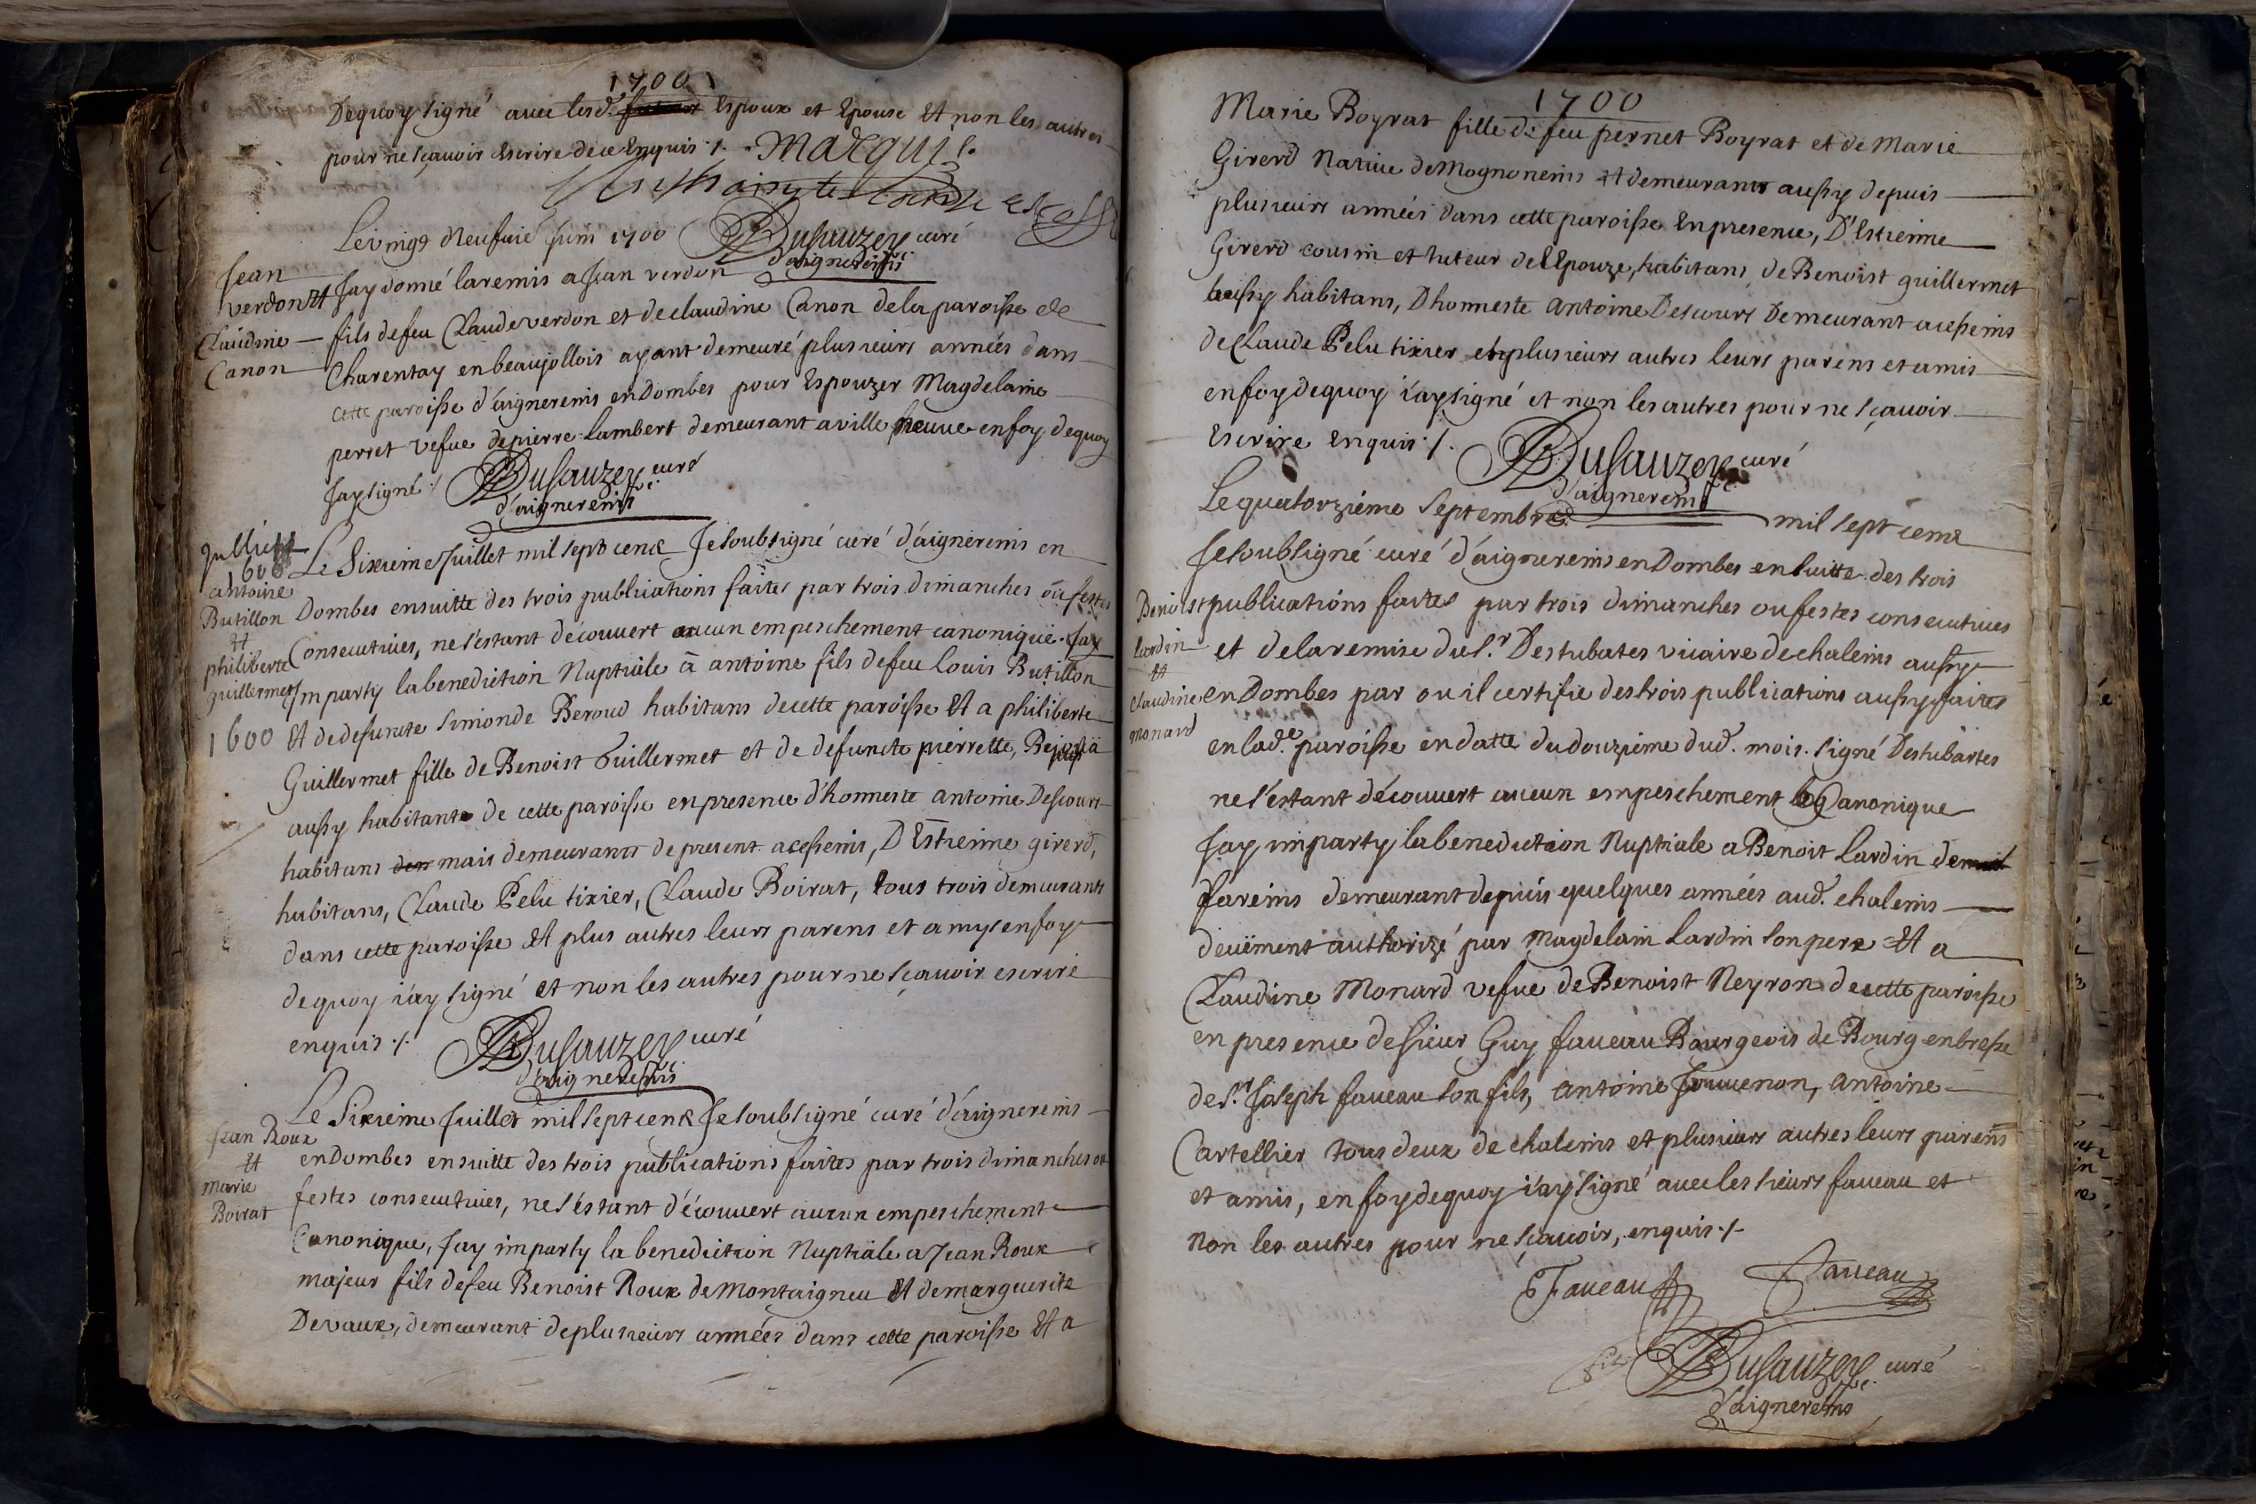 1700
Dequoy signé avec lesd. Espoux et Epouse Et non les autres
pour ne sçavoir escrire de ce Enquis ./. Marquis.
Dusauzey curé
d'aignereins
Le vingt Neufuie Juin 1700
Jean
verdon Et
Claudine
Canon
Jay donné la remis a Jean verdon
fils de feu Claude verdon et de claudine Canon dela paroisse de
Charentay en beaujollois ayant demeuré plusieurs années dans
cette paroisse d'aignereins en Dombes pour Espouzer Magdelaine
perret vefue de pierre Lambert demeurant a ville neuue en foy dequoy
Jay signé ./. Dusauzey curé
d'aignereins
Julliett
antoine
Butillon
Et
philiberte
guillermet
1600
Le Sixieme Juillet mil sept cens Je soubsigné curé d'aignereins en
Dombes ensuitte des trois publications faites par trois dimanches ou festes
Consecutiues, ne s'estant decouuert aucun empeschement canonique. Jay
Imparty la benediction Nuptiale à antoine fils de feu Louis Butillon
Et de defuncte simonde Beroud habitans de cette paroisse Et a philiberte
Guillermet fille de Benoist Guillermet et de defuncte pierrette,
aussy habitants de cette paroisse en presence d'honneste antoine Descours
habitans mais demeurants de present acesseins, D'Estienne girerd,
habitans, Claude Pelu tixier, Claude Boirat, tous trois demeurants
dans cette paroisse Et plus autres leurs parens et amys en foy
dequoy i'ay signé et non les autres pour ne sçavoir escrire
enquis ./. Dusauzey curé
d'aignereins
Jean Roux
Et
Marie
Boirat
Le Sixieme Juillet mil sept cens Je soubsigné curé d'aignereins
en Dombes ensuitte des trois publications faites par trois dimanches ou
festes consecutiues, ne s'estant découuert aucun empeschement
Canonique, Jay imparty la benediction Nuptiale a Jean Roux
majeur fils de feu Benoist Roux de Montaigneu Et de marguerite
Devaux, demeurant de plusieurs années dans cette paroisse Et a
1700
Marie Boyrat fille de feu pernet Boyrat et de Marie
Girerd Natiue de Mogneneins et demeurants aussy depuis
plusieurs années dans cette paroisse En presence, D'Estienne
Girerd cousin et tuteur de l'Epouze, habitans, de Benoist guillermet
aussy habitans, D'honneste antoine Descours Demeurant acesseins
de Claude Pelu tixier et plusieurs autres leurs parens et amis
en foy dequoy i'ay signé et non les autres pour ne sçavoir
Escrire Enquis ./. Dusauzey curé
d'aignereins
Benoist
Lardin
Et
Claudine
Monard
Le quatorziéme Septembre mil sept cens
Je soubsigné curé d'aignereins en Dombes ensuitte des trois
publications faites par trois dimanches ou festes consecutiues
et de la remise du S.r Destubates vicaire de chaleins aussy
en Dombes par ou il certifie des trois publications aussy faites
en lad.e paroisse en datte du douziéme dud. mois. signé Destubartes
ne s'estant découuert aucun empeschement Canonique
Jay imparty la benediction Nuptiale a Benoit Lardin de
fareins demeurant depuis quelques années aud. chaleins
deuëment authorizé par Magdelain Lardin son pere Et a
Claudine Monard vefue de Benoist Neyron de cette paroisse
en presence de sieur Guy faueau Bourgeois de Bourg en bresse
de S.r Joseph faueau son fils, antoine Jouuenon, antoine
Cartellier tous deux de chaleins et plusieurs autres leurs parens
et amis, en foy dequoy i'ay signé auec les sieurs faueau et
Non les autres pour ne sçauoir, enquis ./.
Faueau Faueau
fils
Dusauzey curé
d'aignereins